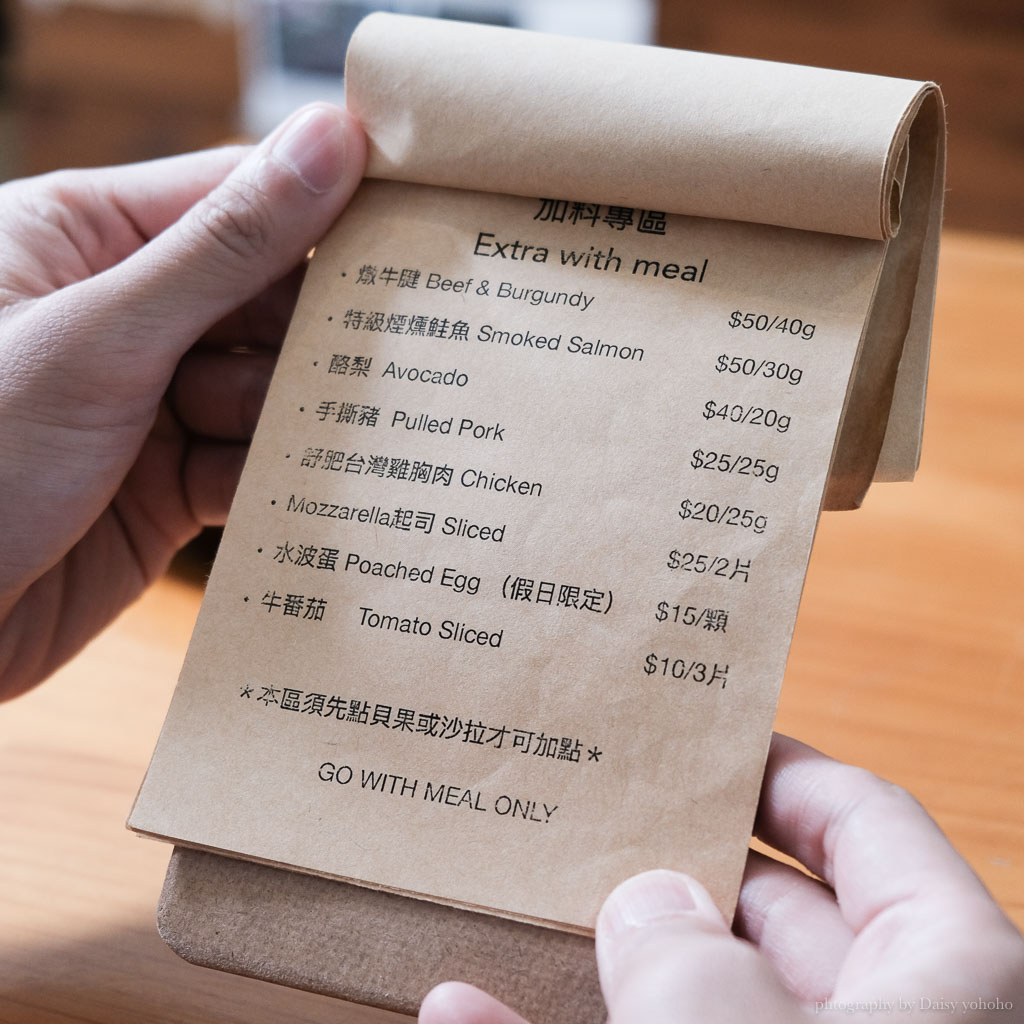 加料專區
Extra with meal
・燉牛腱 Beef & Burgundy $50/40g
・特級煙燻鮭魚 Smoked Salmon $50/30g
・酪梨 Avocado $40/20g
・手撕豬 Pulled Pork $25/25g
・舒肥台灣雞胸肉 Chicken $20/25g
・Mozzarella起司 Sliced $25/2片
・水波蛋 Poached Egg （假日限定） $15/顆
・牛番茄 Tomato Sliced $10/3片
＊本區須先點貝果或沙拉才可加點＊
GO WITH MEAL ONLY
phtography by Daisy yohoho